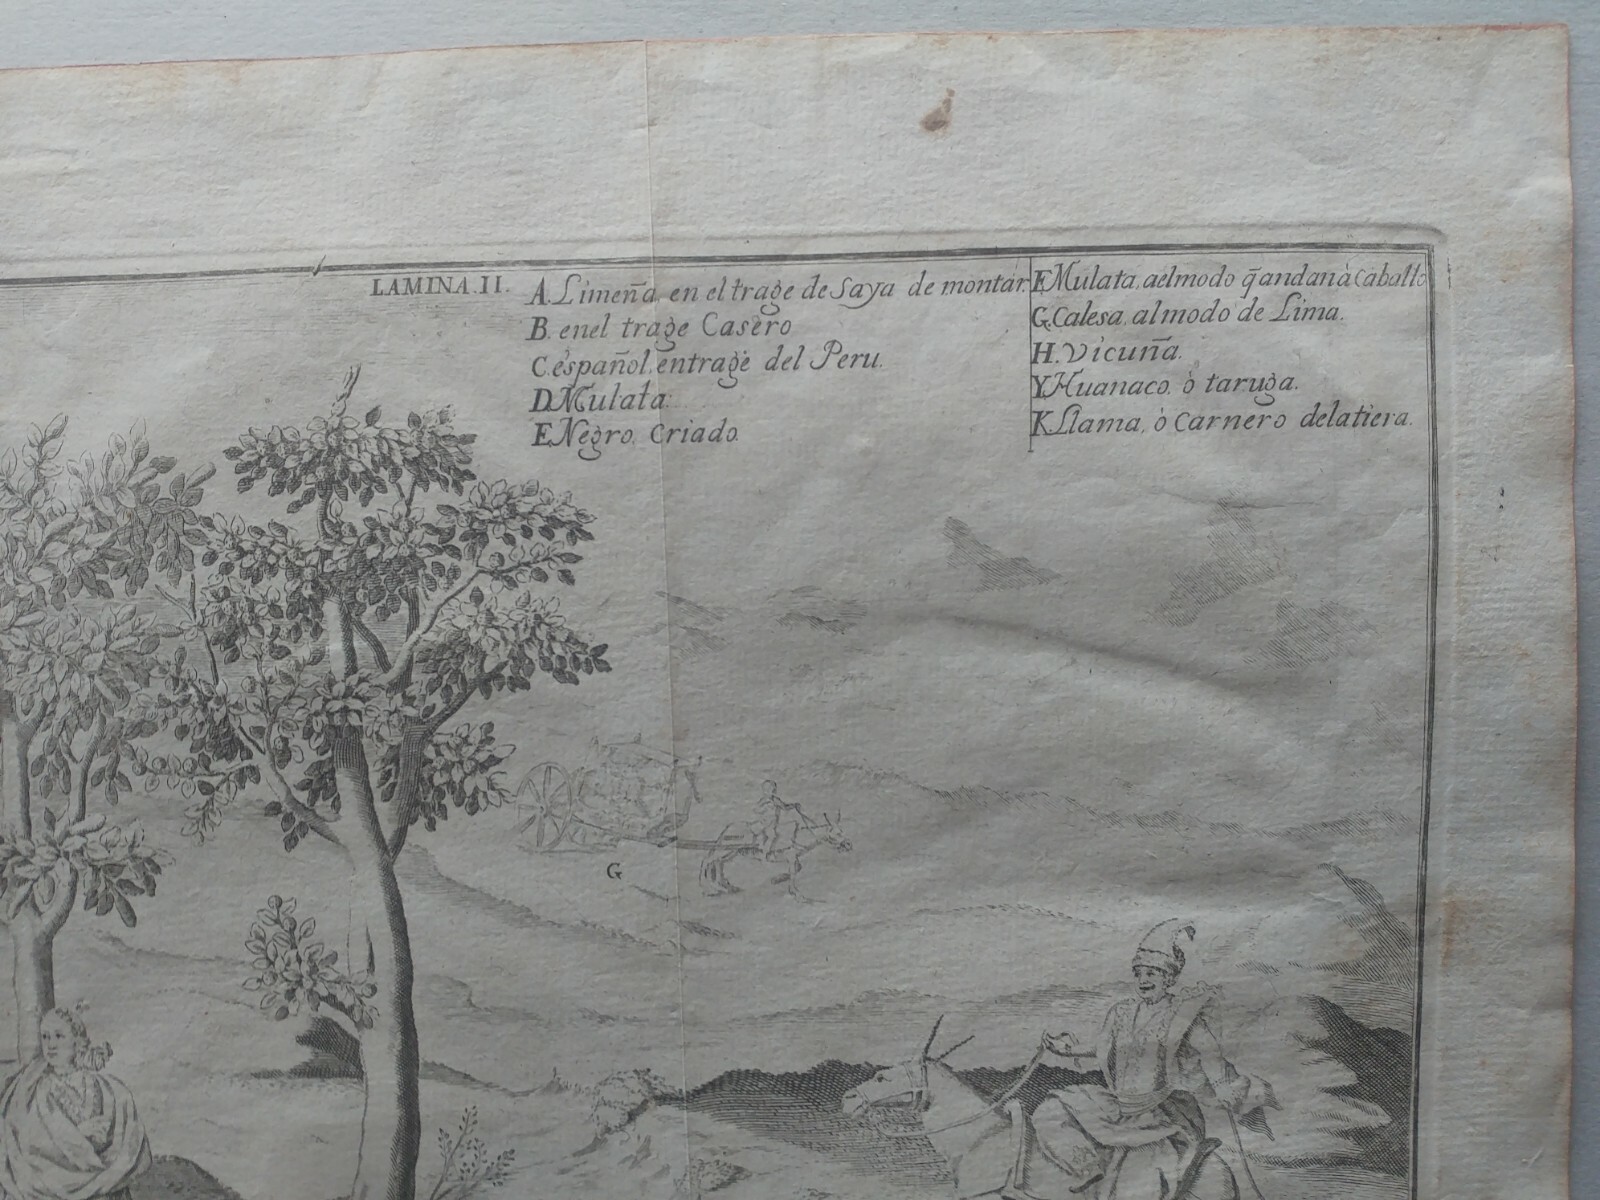 LAMINA.II.
A. Limeña, en el trage de Saya de montàr.
B. enel trage Casero
C. español, entrage del Peru.
D. Mulata.
E. Negro, Criado.
F. Mulata, aelmodo q̃ andan à Caballo
G. Calesa, almodo de Lima.
H. Vicuña.
Y. Huanaco, ò taruga.
K. Llama, ò Carnero delatiera.
G